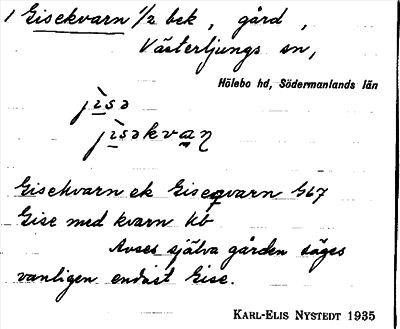 1 Gisekvarn 1/2 bek, gård,
Västerljungs sn,
Hölebo hd, Södermanlands län
jìsə
jìsəkvaɳ
Gisekvarn ek Giseqvarn G67
Gise med kvarn Kb
Avses själva gården säges
vanligen endast Gise.
KARL-ELIS NYSTEDT 1935